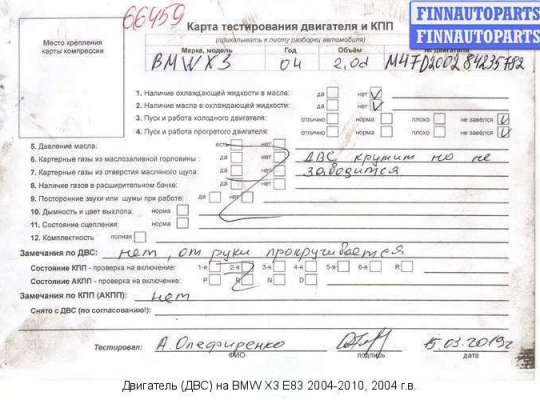 66459
FINNAUTOPARTS
FINNAUTOPARTS
Карта тестирования двигателя и КПП
(прикалывать к листу разборки автомобиля)
Место крепления
карты компрессии
Марка, модель Год Объём № двигателя
BMW X3 04 2,0d M47D2002 84235782
1. Наличие охлаждающей жидкости в масле: да нет
2. Наличие масла в охлаждающей жидкости: да нет
3. Пуск и работа холодного двигателя: отлично норма плохо не завёлся
4. Пуск и работа прогретого двигателя: отлично норма плохо не завёлся
5. Давление масла: есть нет
6. Картерные газы из маслозаливной горловины: да нет ДВС крутит но не
7. Картерные газы из отверстия масляного щупа: да нет заводится
8. Наличие газов в расширительном бачке: да нет
9. Посторонние звуки или шумы при работе: да нет
10. Дымность и цвет выхлопа: норма
11. Состояние сцепления: норма
12. Комплектность полная
Замечания по ДВС: нет, от руки прокручивается
Состояние КПП - проверка на включение: 1-я 2-я 3-я 4-я 5-я 6-я R
Состояние АКПП - проверка на включение: P R N D
Замечания по КПП (АКПП): нет
Снято с ДВС (по согласованию!):
Тестировал: А. Олефиренко 15.01.2019г
ФИО подпись дата
Двигатель (ДВС) на BMW X3 E83 2004-2010, 2004 г.в.